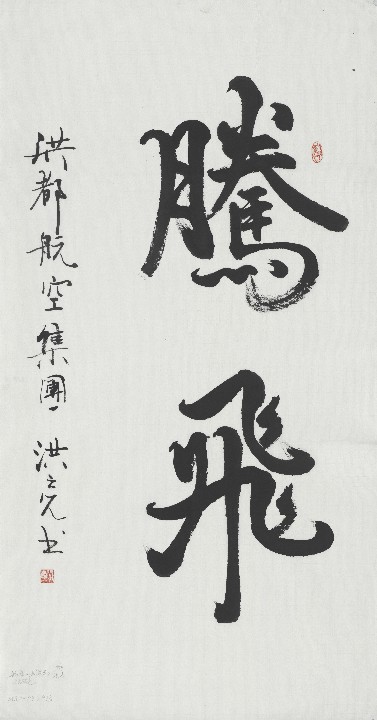 騰飛
洪都航空集團 洪之光书